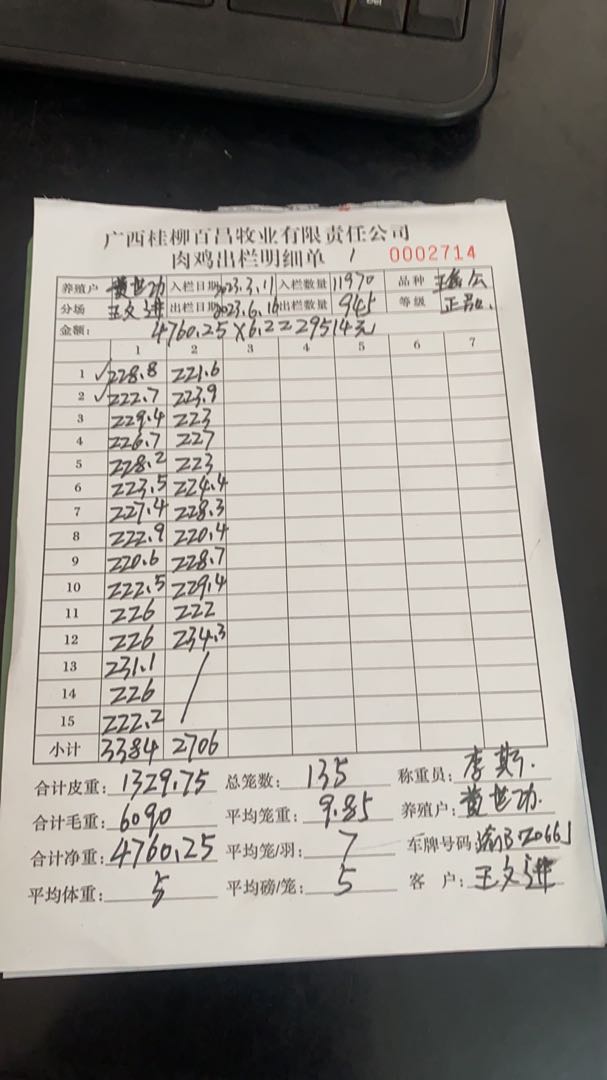 广西桂柳百昌牧业有限责任公司
肉鸡出栏明细单 1 0002714
养殖户 黄世功 入栏日期 2023.3.11 入栏数量 11970 品种
分场 王文进 出栏日期 2023.6.16 出栏数量 945 等级 正品.
金额: 4760.25×6.2=29514元
1 2 3 4 5 6 7
1 ✓228.8 221.6
2 ✓222.7 223.9
3 229.4 223
4 226.7 227
5 228.2 223
6 223.5 224.4
7 227.4 228.3
8 222.9 220.4
9 220.6 228.7
10 222.5 229.4
11 226 222
12 226 234.3
13 231.1
14 226
15 222.2
小计 3384 2706
合计皮重: 1329.75 总笼数: 135 称重员: 李斯.
合计毛重: 6090 平均笼重: 9.85 养殖户: 黄世功.
合计净重: 4760.25 平均笼/羽: 7 车牌号码
平均体重: 5 平均磅/笼: 5 客 户: 王文进